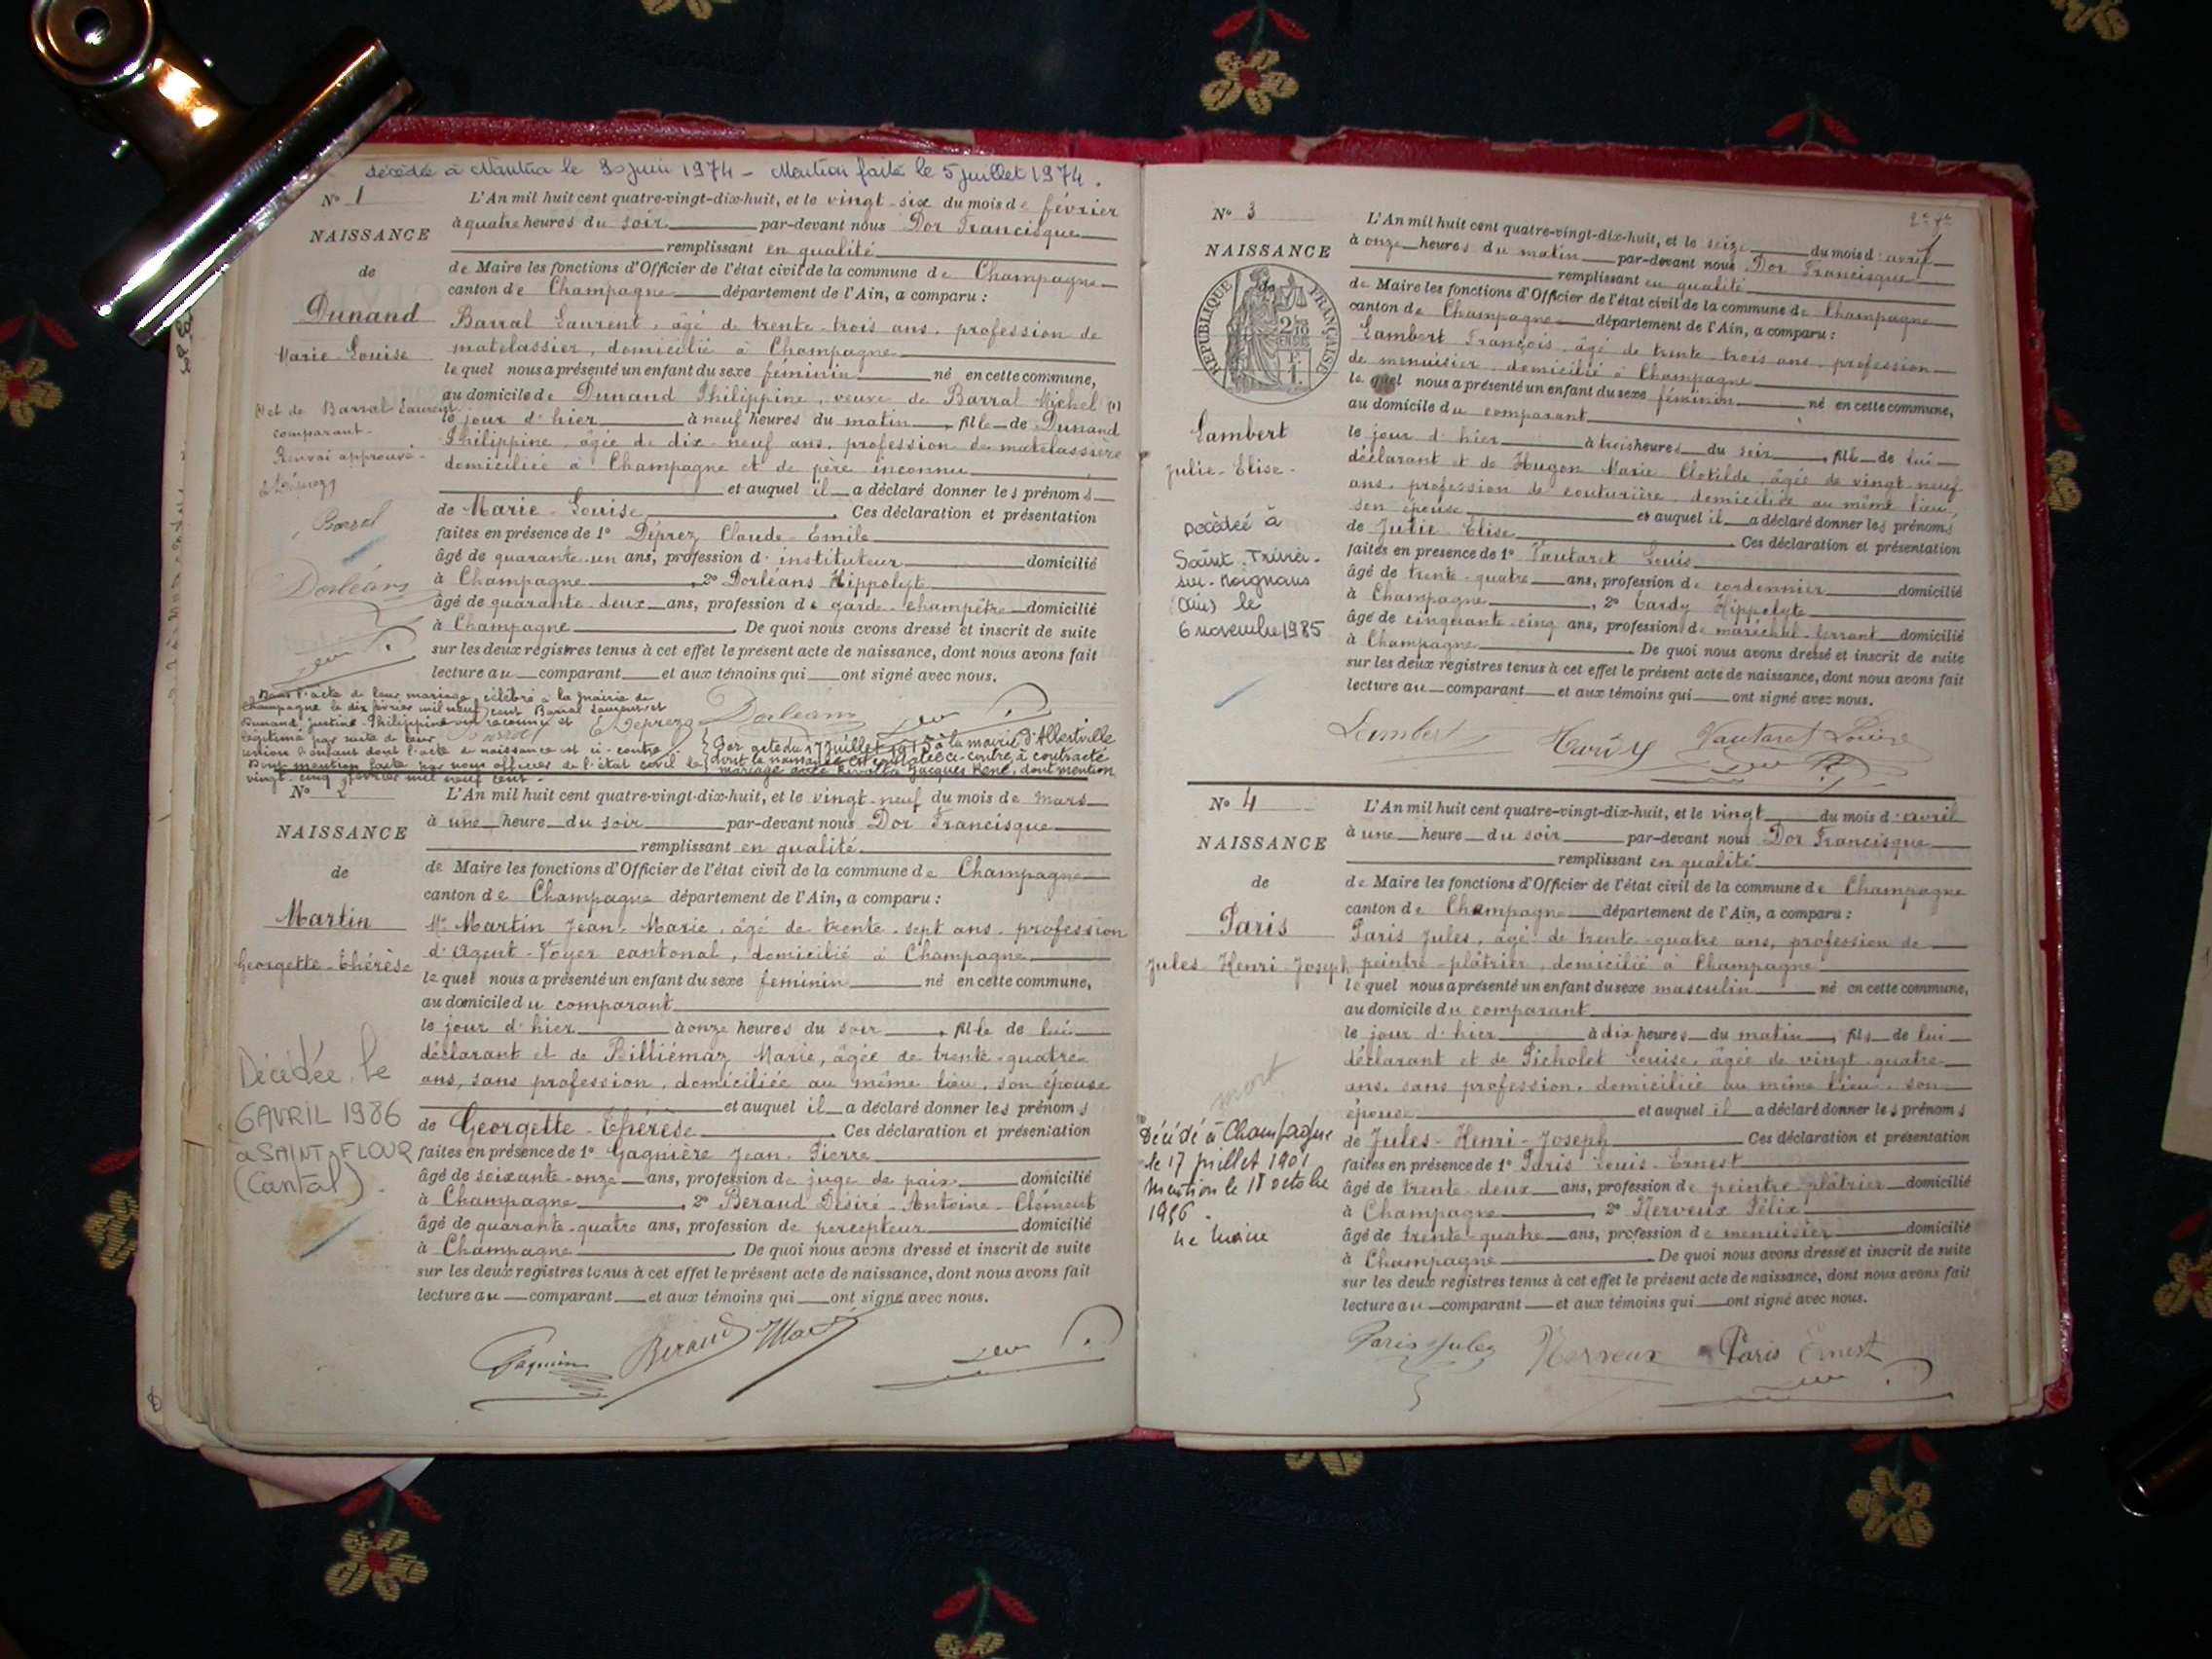 décédée à Nantua le 30 juin 1974 - Mention faite le 5 juillet 1974.
N° 1
NAISSANCE
de
Dunand
Marie-Louise
L'An mil huit cent quatre-vingt-dix-huit, et le vingt-six du mois de février
à quatre heures du soir par-devant nous Dor Francisque
remplissant en qualité
de Maire les fonctions d'Officier de l'état civil de la commune de Champagne
canton de Champagne département de l'Ain, a comparu :
Barral Laurent, âgé de trente-trois ans, profession de
matelassier, domicilié à Champagne
le quel nous a présenté un enfant du sexe féminin né en cette commune,
au domicile de Dunand Philippine, veuve de Barral Michel (1)
le jour d'hier à neuf heures du matin, fille de Dunand
Philippine, âgée de dix-neuf ans, profession de matelassière
domiciliée à Champagne et de père inconnu
et auquel il a déclaré donner les prénoms
de Marie-Louise. Ces déclaration et présentation
faites en présence de 1° Déprez Claude-Emile
âgé de quarante-un ans, profession d'instituteur domicilié
à Champagne, 2° Dorléans Hippolyte
âgé de quarante-deux ans, profession de garde-champêtre domicilié
à Champagne. De quoi nous avons dressé et inscrit de suite
sur les deux registres tenus à cet effet le présent acte de naissance, dont nous avons fait
lecture au comparant et aux témoins qui ont signé avec nous.
(1) et de Barral Laurent
comparant.
Renvoi approuvé.
Barral
Dorléans
Dans l'acte de leur mariage, célébré à la mairie de
Champagne le dix février mil neuf cent Barral Laurent et
Dunand Justine-Philippine ont reconnu et
légitimé par suite de leur
union l'enfant dont l'acte de naissance est ci-contre
Dont mention faite par nous officier de l'état civil le
vingt-cinq février mil neuf cent.
Barral E. Deprez Dorléans
Par acte du 17 juillet à la mairie d'Albertville
ci-contre, a contracté
mariage avec Jacques René, dont mention
N° 2
NAISSANCE
de
Martin
Georgette-Thérèse
L'An mil huit cent quatre-vingt-dix-huit, et le vingt-neuf du mois de mars
à une heure du soir par-devant nous Dor Francisque
remplissant en qualité
de Maire les fonctions d'Officier de l'état civil de la commune de Champagne
canton de Champagne département de l'Ain, a comparu :
Mr Martin Jean-Marie, âgé de trente-sept ans, profession
d'Agent-Voyer cantonal, domicilié à Champagne
le quel nous a présenté un enfant du sexe féminin né en cette commune,
au domicile du comparant
le jour d'hier à onze heures du soir, fille de lui
déclarant et de Billiémaz Marie, âgée de trente-quatre
ans, sans profession, domiciliée au même lieu, son épouse
et auquel il a déclaré donner les prénoms
de Georgette-Thérèse. Ces déclaration et présentation
faites en présence de 1° Gagnière Jean-Pierre
âgé de soixante-onze ans, profession de juge de paix domicilié
à Champagne, 2° Beraud Désiré-Antoine-Clément
âgé de quarante-quatre ans, profession de percepteur domicilié
à Champagne. De quoi nous avons dressé et inscrit de suite
sur les deux registres tenus à cet effet le présent acte de naissance, dont nous avons fait
lecture au comparant et aux témoins qui ont signé avec nous.
Décédée le
6 AVRIL 1986
à SAINT-FLOUR
(Cantal).
Beraud
N° 3
NAISSANCE
de
RÉPUBLIQUE FRANÇAISE
Lambert
Julie-Elise-
L'An mil huit cent quatre-vingt-dix-huit, et le seize du mois d'avril
à onze heures du matin par-devant nous Dor Francisque
remplissant en qualité
de Maire les fonctions d'Officier de l'état civil de la commune de Champagne
canton de Champagne département de l'Ain, a comparu :
Lambert François, âgé de trente-trois ans, profession
de menuisier, domicilié à Champagne
le quel nous a présenté un enfant du sexe féminin né en cette commune,
au domicile du comparant
le jour d'hier à trois heures du soir, fille de lui
déclarant et de Hugon Marie Clotilde, âgée de vingt-neuf
ans, profession de couturière, domiciliée au même lieu,
son épouse et auquel il a déclaré donner les prénoms
de Julie-Elise. Ces déclaration et présentation
faites en présence de 1° Vautaret Louis
âgé de trente-quatre ans, profession de cordonnier domicilié
à Champagne, 2° Tardy Hippolyte
âgé de cinquante-cinq ans, profession de maréchal-ferrant domicilié
à Champagne. De quoi nous avons dressé et inscrit de suite
sur les deux registres tenus à cet effet le présent acte de naissance, dont nous avons fait
lecture au comparant et aux témoins qui ont signé avec nous.
Décédée à
Saint-Trivier-
sur-Moignans
(Ain) le
6 novembre 1985
Lambert Vautaret Louis
N° 4
NAISSANCE
de
Paris
Jules-Henri-Joseph
L'An mil huit cent quatre-vingt-dix-huit, et le vingt du mois d'avril
à une heure du soir par-devant nous Dor Francisque
remplissant en qualité
de Maire les fonctions d'Officier de l'état civil de la commune de Champagne
canton de Champagne département de l'Ain, a comparu :
Paris Jules, âgé de trente-quatre ans, profession de
peintre-plâtrier, domicilié à Champagne
le quel nous a présenté un enfant du sexe masculin né en cette commune,
au domicile du comparant
le jour d'hier à dix heures du matin, fils de lui
déclarant et de Picholet Louise, âgée de vingt-quatre
ans, sans profession, domiciliée au même lieu, son
épouse et auquel il a déclaré donner les prénoms
de Jules-Henri-Joseph Ces déclaration et présentation
faites en présence de 1° Paris Louis-Ernest
âgé de trente-deux ans, profession de peintre-plâtrier domicilié
à Champagne, 2° Nerveux Félix
âgé de trente-quatre ans, profession de menuisier domicilié
à Champagne. De quoi nous avons dressé et inscrit de suite
sur les deux registres tenus à cet effet le présent acte de naissance, dont nous avons fait
lecture au comparant et aux témoins qui ont signé avec nous.
mort
Décédé à Champagne
le 17 juillet 1901
Mention le 18 octobre
1956.
Le Maire
Paris Jules Nerveux Paris Ernest